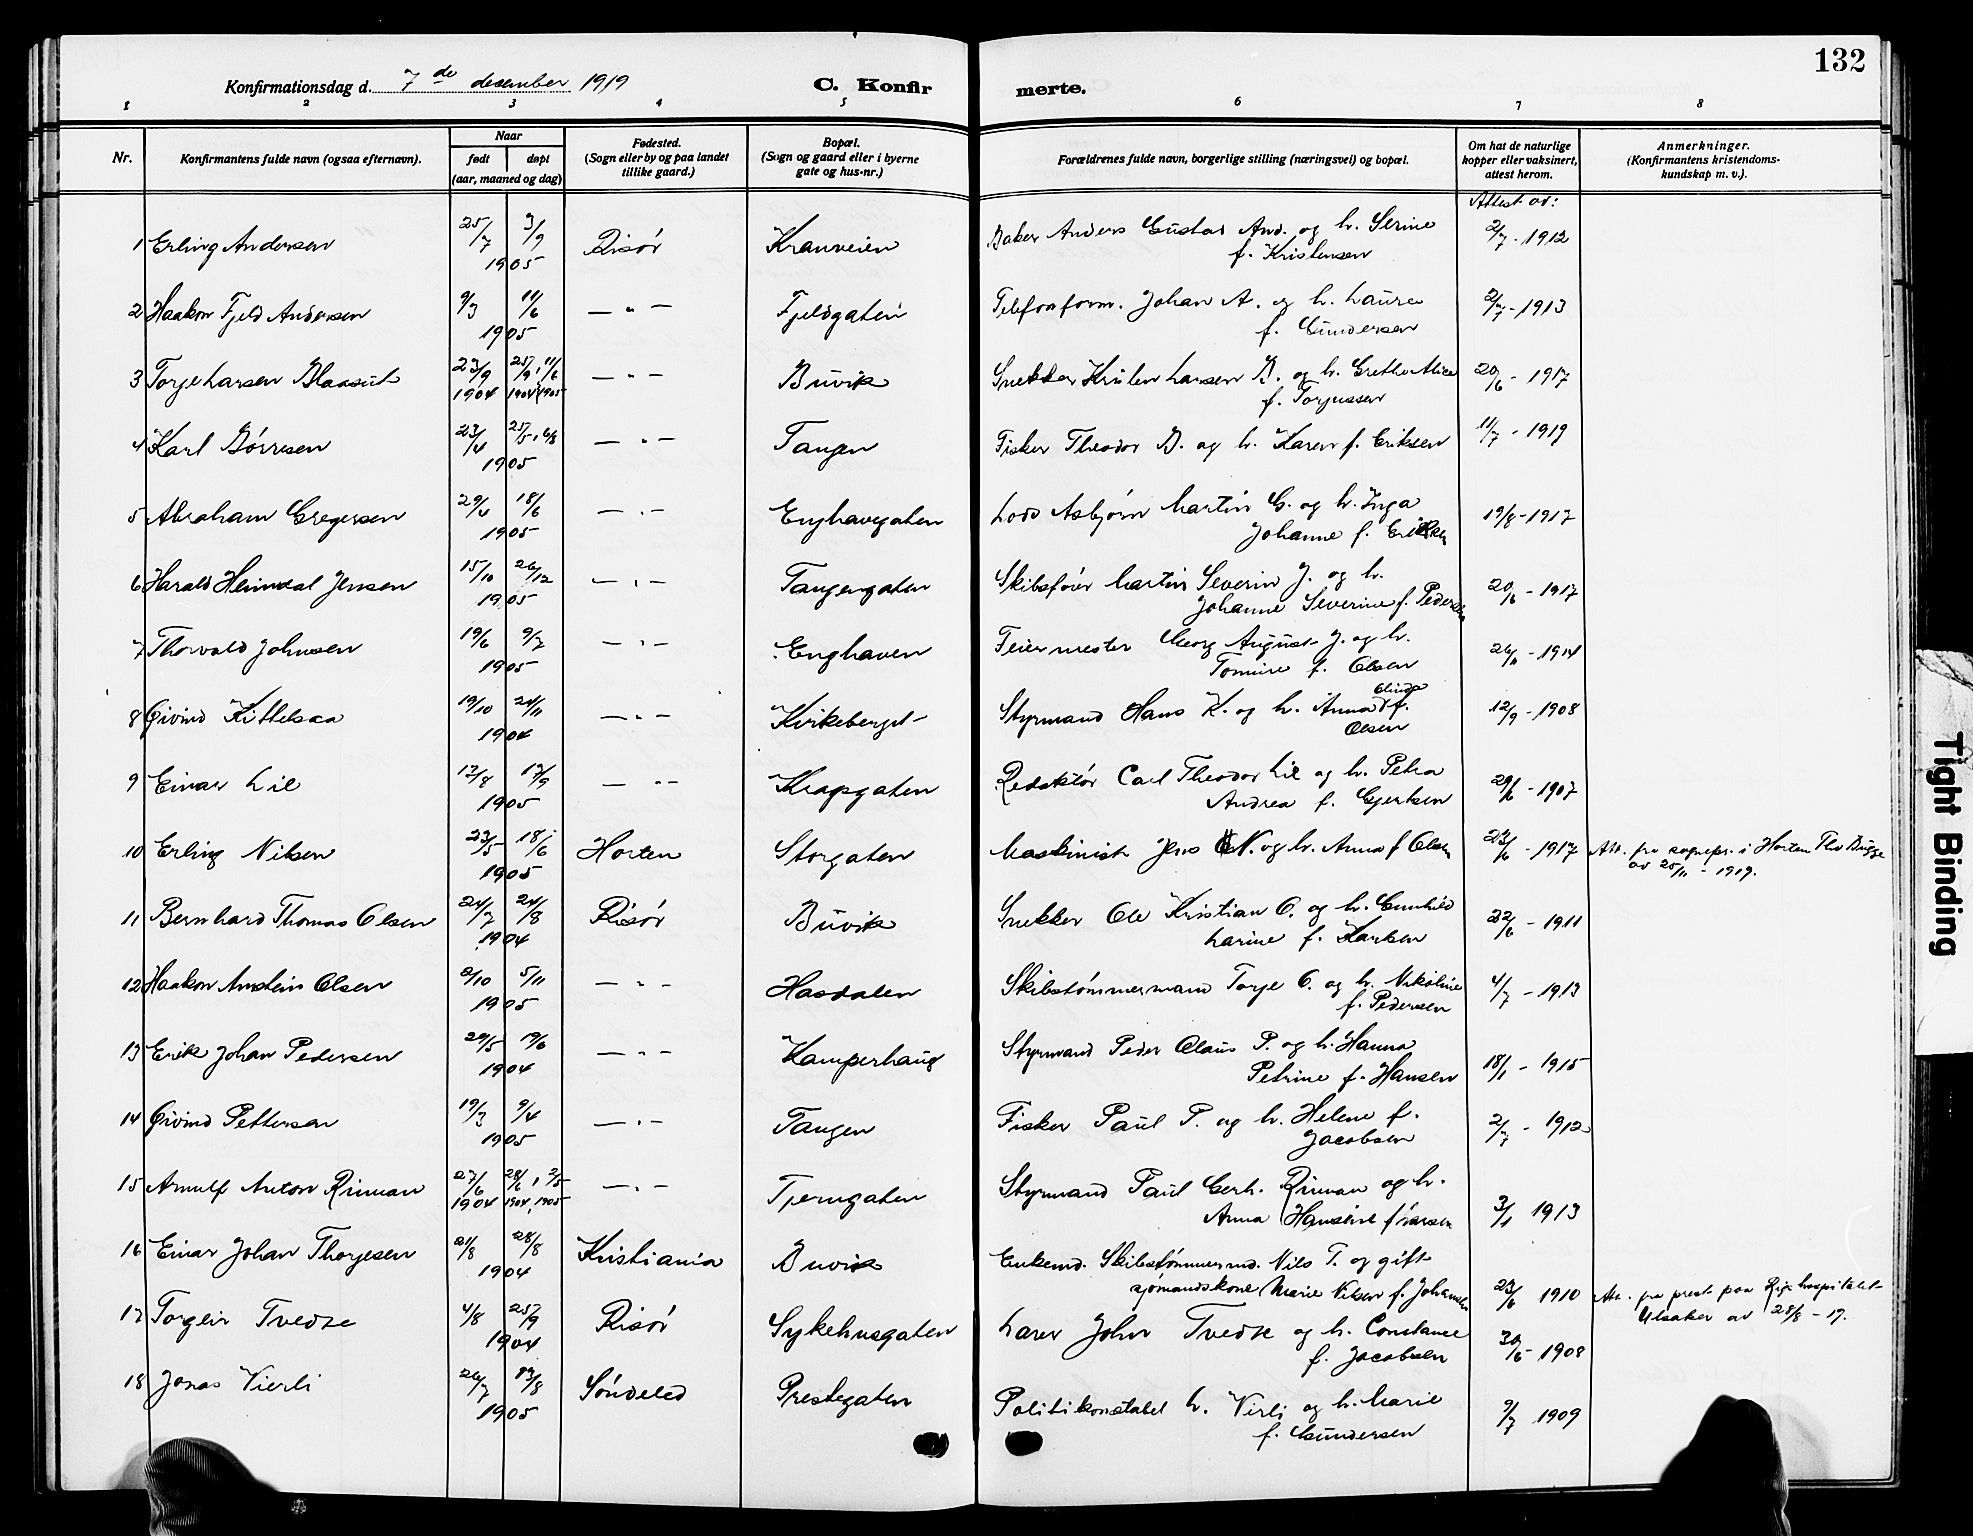 132
Konfirmationsdag d. 7de desember 1919 C. Konfir merte.
1 2 3 4 5 6 7 8
Nr. Konfirmantens fulde navn (ogsaa efternavn). Naar født døpt (aar, maaned og dag) Fødested. (Sogn eller by og paa landet tillike gaard.) Bopæl. (Sogn og gaard eller i byerne gate og hus-nr.) Forældrenes fulde navn, borgerlige stilling (næringsvei) og bopæl. Om hat de naturlige kopper eller vaksinert, attest herom. Anmerkninger. (Konfirmantens kristendoms-kundskap m. v.).
Attest av:
1 Erling Andersen 25/7 3/9 1905 Risør Kranveien Baker Anders Gustav And. og h. Serine
f. Kristensen 2/7 - 1912
2 Haakon Fjeld Andersen 9/3 11/6 1905 — " — Fjeldgaten Telefonform. Johan A. og h. Laura
f. Gundersen 2/7 - 1913
3 Torje Larsen Blaasut 23/9 1904 25/9 1904, 11/6 1905 — " — Buvik Snekker Larsen B. og h. Grethe Alice
f. Torjussen 20/6 - 1917
4 Karl Børresen 23/4 25/5, 6/8 1905 — " — Tangen Fisker Theodor B. og h. Karen f. Eriksen 11/7 - 1919
5 Abraham Gregersen 29/4 18/6 1905 — " — Enghavegaten Lods Asbjørn Martin G. og h. Inga
Johanne f. Eriksen 19/8 - 1917
6 Harald Heimdal Jensen 15/10 26/12 1905 — " — Tangengaten Skibsfører Martin Severin J. og h.
Johanne Severine f. Pedersen 20/6 - 1917
7 Thorvald Johnsen 19/6 9/7 1905 — " — Enghaven Feiermester Georg August J. og h.
Tomine f. Olsen 26/11 - 1914
8 Øivind Kittelsen 19/10 24/11 1904 — " — Kirkeberget Styrmand Hans K. og h. Anna Elinda f.
Olsen 12/9 - 1908
9 Einar Lil 12/8 17/9 1905 — " — Kragsgaten Redaktør Carl Theodor Lil og h. Petra
Andrea f. Gjertsen 29/6 - 1907
10 Erling Nilsen 23/5 18/6 1905 Horten Storgaten Maskinist Jens N. og h. Anna f. Olsen 23/6 - 1917 Att. fra sognepr. i Horten Thv Bugge
av 25/11 - 1919.
11 Bernhard Thomas Olsen 24/7 24/8 1904 Risør Buvik Snekker Ole Kristian O. og h. Gunhild
Larine f. Karlsen 22/6 - 1911
12 Haakon Anstein Olsen 2/10 5/11 1905 — " — Hasdalen Skibstømmermand Torje O. og h. Nikoline
f. Pedersen 4/7 - 1913
13 Erik Johan Pedersen 20/5 19/6 1904 — " — Kamperhaug Styrmand Peder Claus P. og h. Hanna
Petrine f. Hansen 18/1 - 1915
14 Øivind Pettersen 19/3 9/4 1905 — " — Tangen Fisker Paul P. og h. Helene f.
Jacobsen 2/7 - 1912
15 Arnulf Anton Rinman 27/6 1904 28/6 1904, 2/5 1905 — " — Tjerngaten Styrmand Paul Gerh. Rinman og h.
Anna Hansine f. Larsen 3/1 1913
16 Einar Johan Thorjesen 21/8 28/8 1904 Kristiania Buvik Enkemd. Skibstømmermd. Nils T. og gift
sjømandskone Marie Nilsen f. Johansen 23/6 1910 Att. fra prest paa Rigshospitalet
Ulsaker av 28/8 - 19.
17 Torgeir Tvedte 4/8 25/9 1904 Risør Sykehusgaten Lærer John Tvedte og h. Constance
f. Jacobsen 30/6 - 1908
18 Jonas Vierli 26/7 13/8 1905 Søndeled Prestegaten Politikonstabel h. Virli og h. Marie
f. Gundersen 9/7 1909
Tight Binding